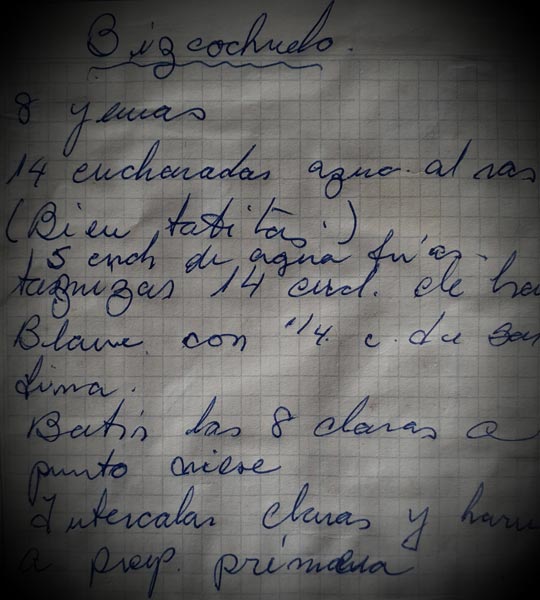 Bizcochuelo.
8 yemas
14 cucharadas azuc. al ras
(Bien batiditas.)
5 cuch de agua frías
tamizas 14 cuch. de ha
Blanc. con 1/4. c. de
fina.
Batir las 8 claras a
punto nieve
Intercalar claras y harin
a prep. primera